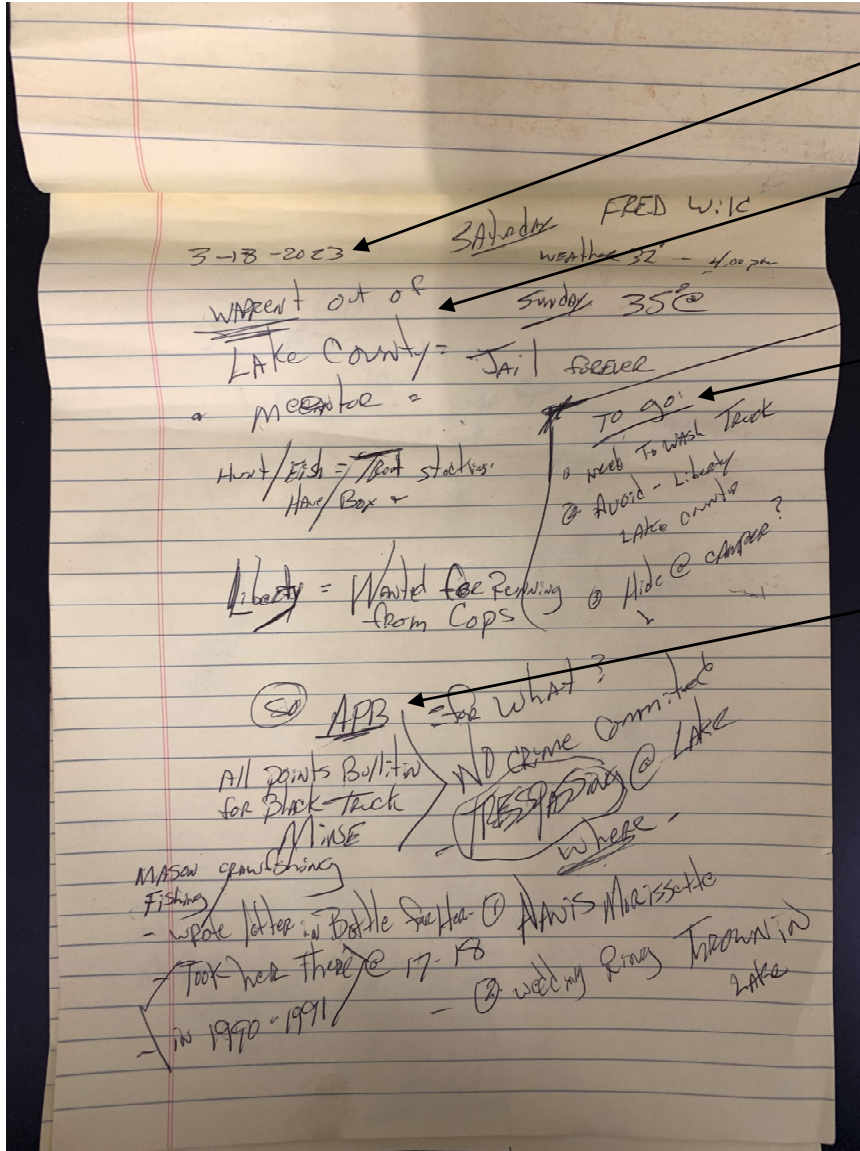 FRED Wild
3-18-2023 Saturday WEAther 32° - 4:00 pm
WARRENt out of Sunday 35° @
LAke County = JAil forever
MeEntor =
To go:
Hunt/Fish = Trout stocking.
Have/Box
need To WASH Truck
@ Avoid - Liberty
LAke County
@ Hide @ CAMPER?
Liberty = Wanted for Running
from Cops
So APB = for What?
All points Bullitin
for Black Truck
NO CRIME Committed
- TRESSPASSING @ LAKE
where -
MASON
Fishing
- wrote letter in Bottle for Her - ① AlANis Morissette
- Took her There @ 17-18
- in 1990-1991
- ② wedding Ring THROWN in
LAKE